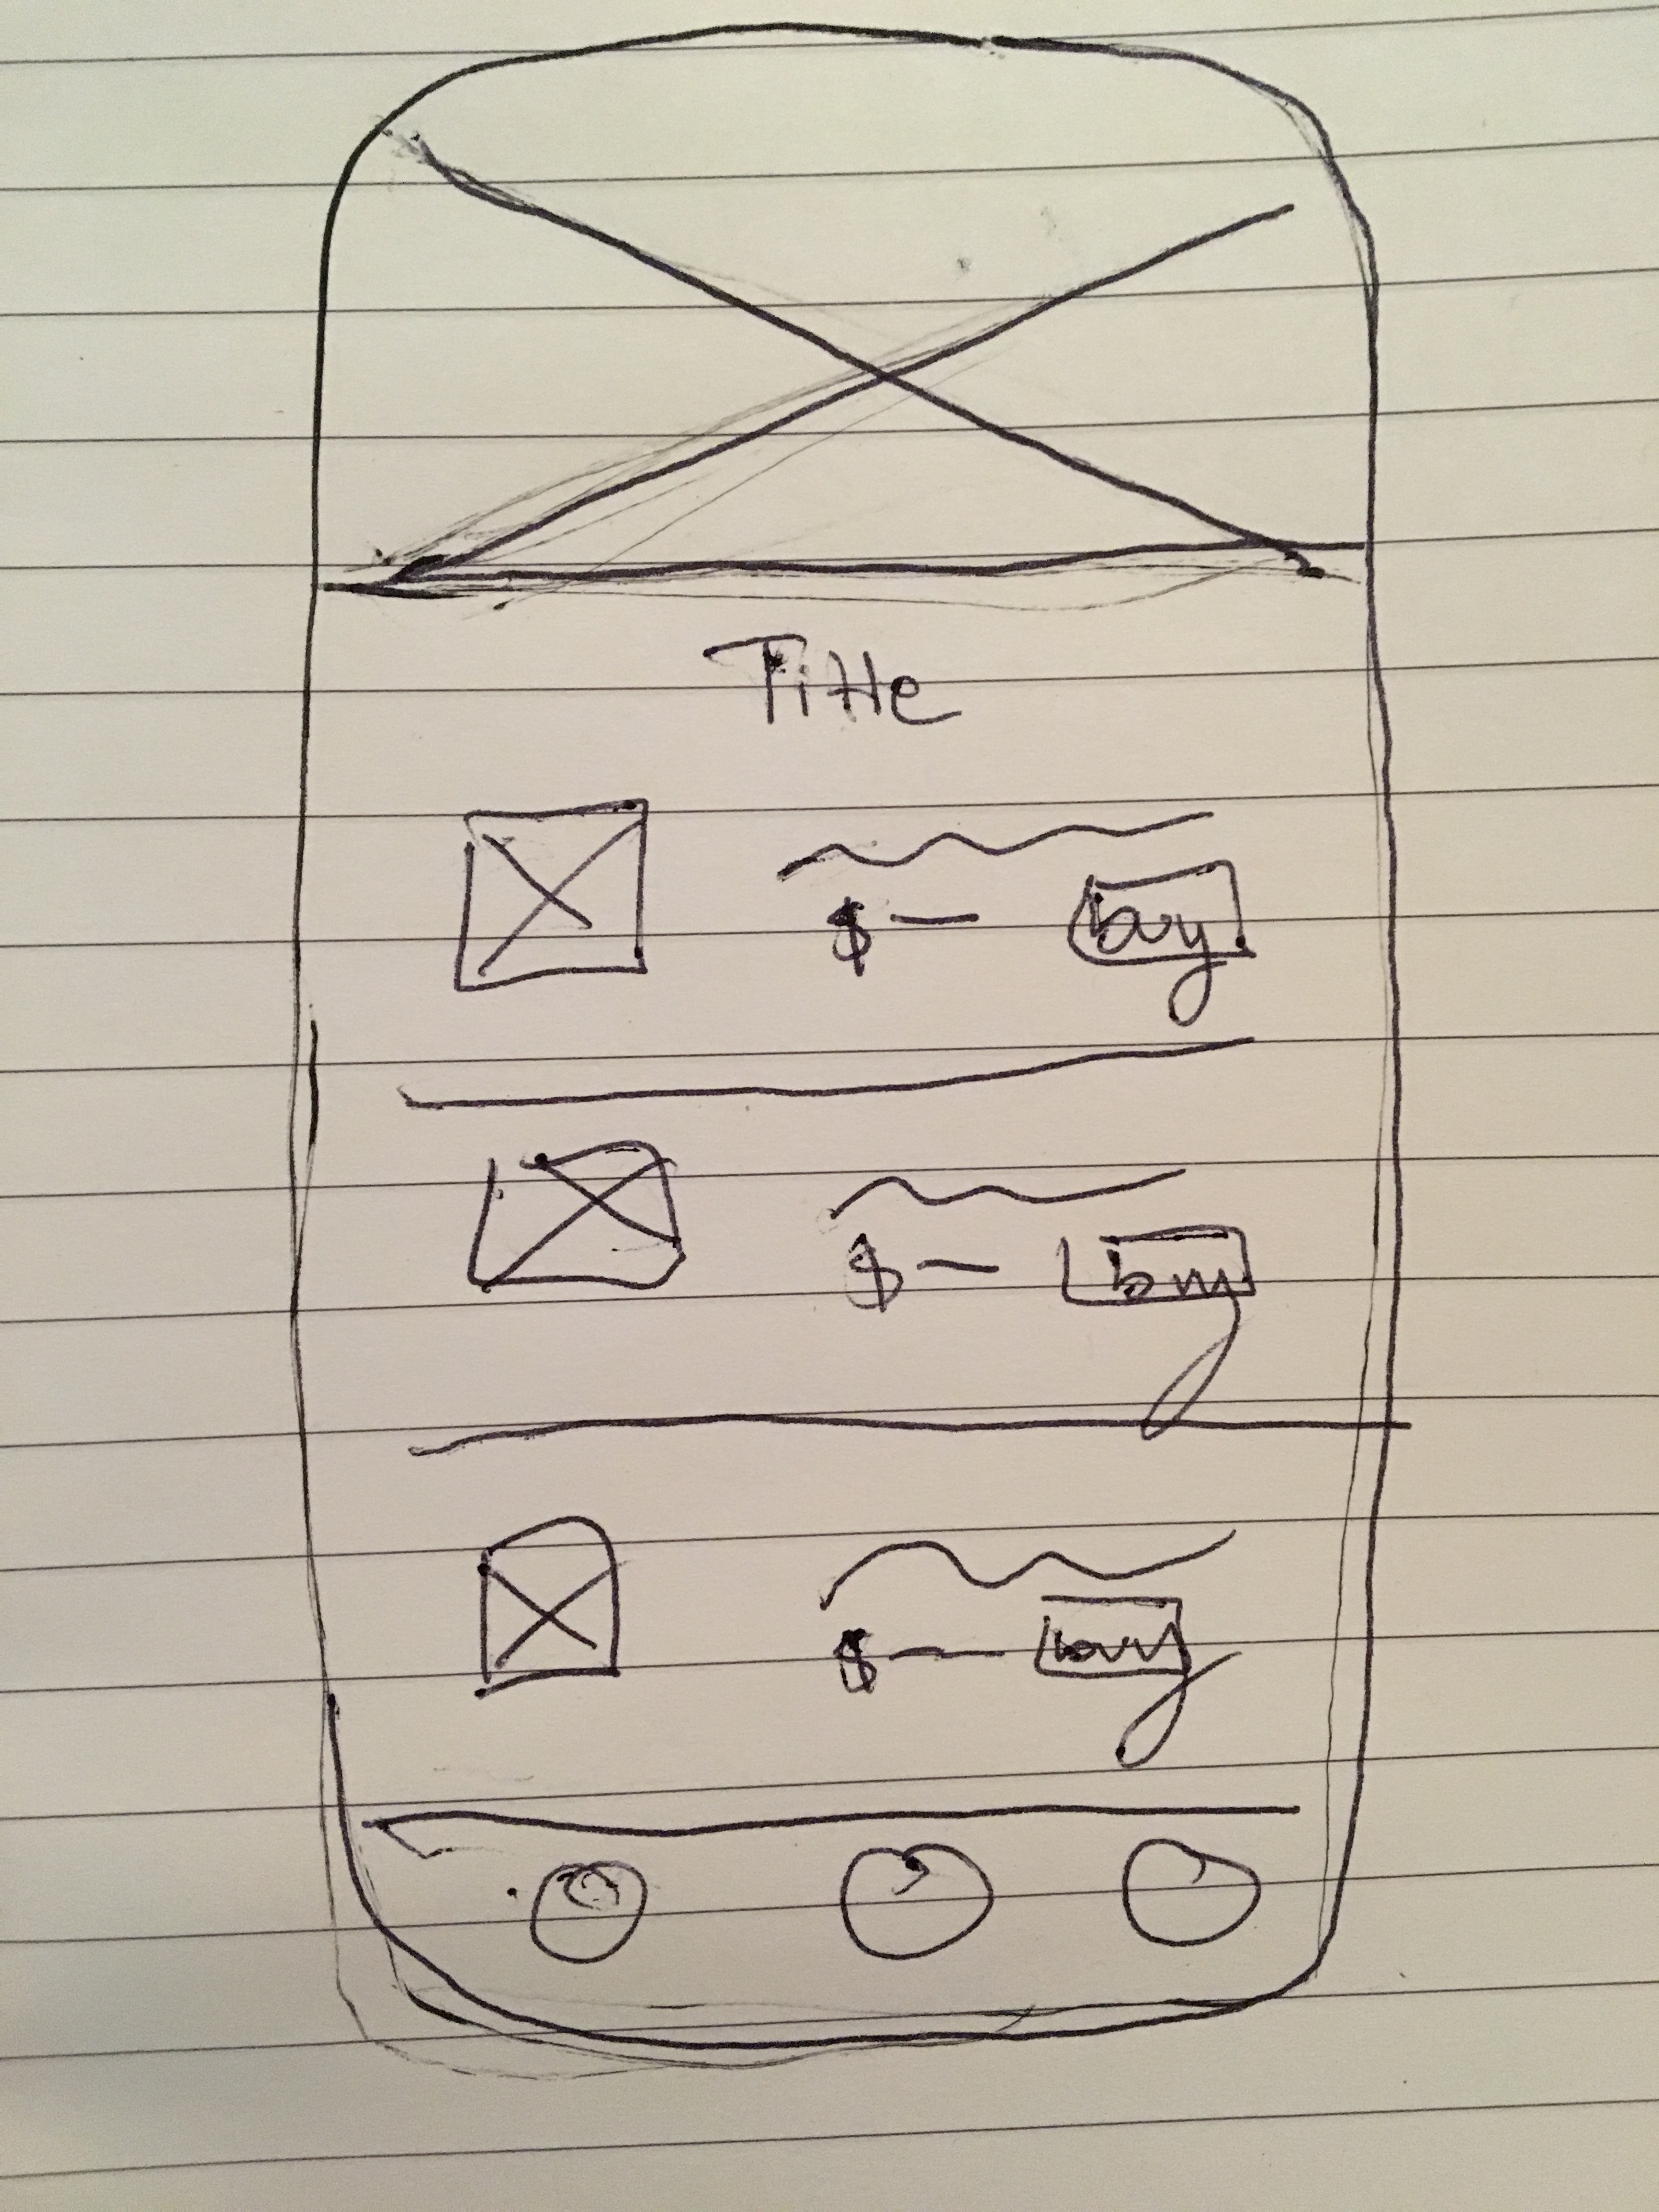 Title
$ — buy
$ — buy
$ — buy